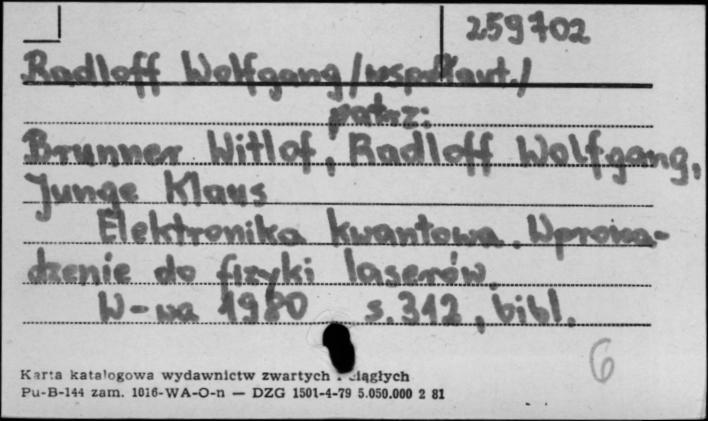 259702
Radloff Wolfgang /współaut./
patrz:
Brunner Witlof, Radloff Wolfgang,
Junge Klaus
Elektronika kwantowa. Wprowa-
dzenie do fizyki laserów.
W-wa 1980 s. 312, bibl.
6
Karta katalogowa wydawnictw zwartych i ciągłych
Pu-B-144 zam. 1016-WA-O-n — DZG 1501-4-79 5.050.000 2 81